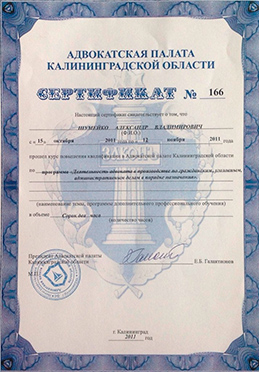 АДВОКАТСКАЯ ПАЛАТА
КАЛИНИНГРАДСКОЙ ОБЛАСТИ
СЕРТИФИКАТ № 166
Настоящий сертификат свидетельствует о том, что
ШУМЕЙКО АЛЕКСАНДР ВЛАДИМИРОВИЧ
(Ф.И.О.)
с 15 октября 2011 года по 12 ноября 2011
прошел курс повышения квалификации в Адвокатской палате Калининградской области
по программе «Деятельность адвоката в производстве по гражданским, уголовным,
административным делам в порядке назначения»
ЗАКОНЪ
(наименование темы, программы дополнительного профессионального обучения)
в объеме Сорок два часа
(количество часов)
Президент Адвокатской палаты
Калининградской области Е.В.
М.П.
г. Калининград
2011